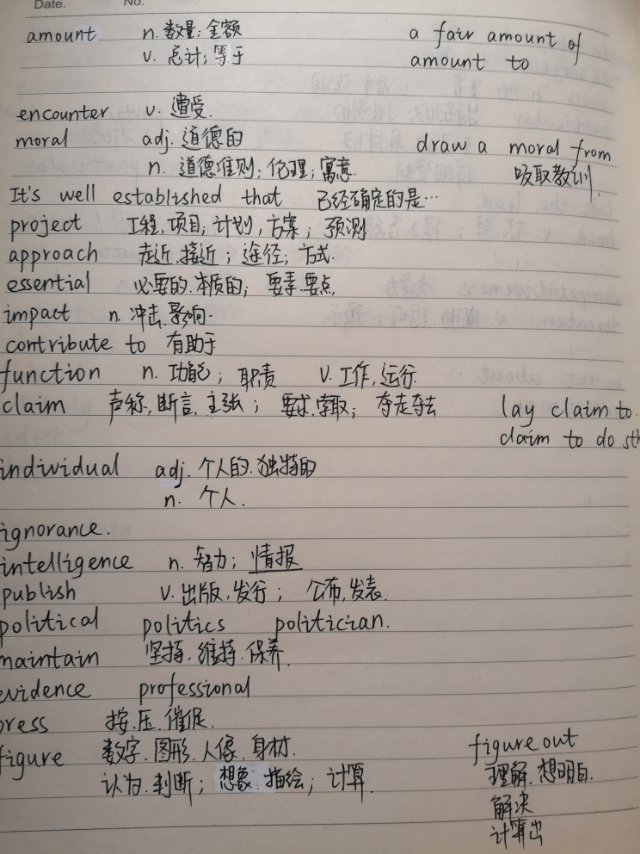 Date. No.
amount n. 数量; 金额 a fair amount of
v. 总计; 等于 amount to
encounter v. 遭受.
moral adj. 道德的 draw a moral from
n. 道德准则; 伦理; 寓意. 吸取教训.
It's well established that 已经确定的是…
project 工程, 项目; 计划, 方案; 预测
approach 走近, 接近; 途径; 方式.
essential 必要的. 本质的; 要素. 要点.
impact n. 冲击. 影响.
contribute to 有助于
function n. 功能; 职责 v. 工作, 运行.
claim 声称, 断言, 主张; 要求, 索取; 夺走夺去 lay claim to.
claim to do sth
individual adj. 个人的. 独特的
n. 个人.
ignorance.
intelligence n. 智力; 情报
publish v. 出版, 发行; 公布, 发表.
political politics politician.
maintain 坚持. 维持. 保养.
evidence professional
press 按. 压. 催促.
figure 数字. 图形. 人像. 身材. figure out
认为. 判断; 想象. 描绘; 计算. 理解. 想明白.
解决
计算出